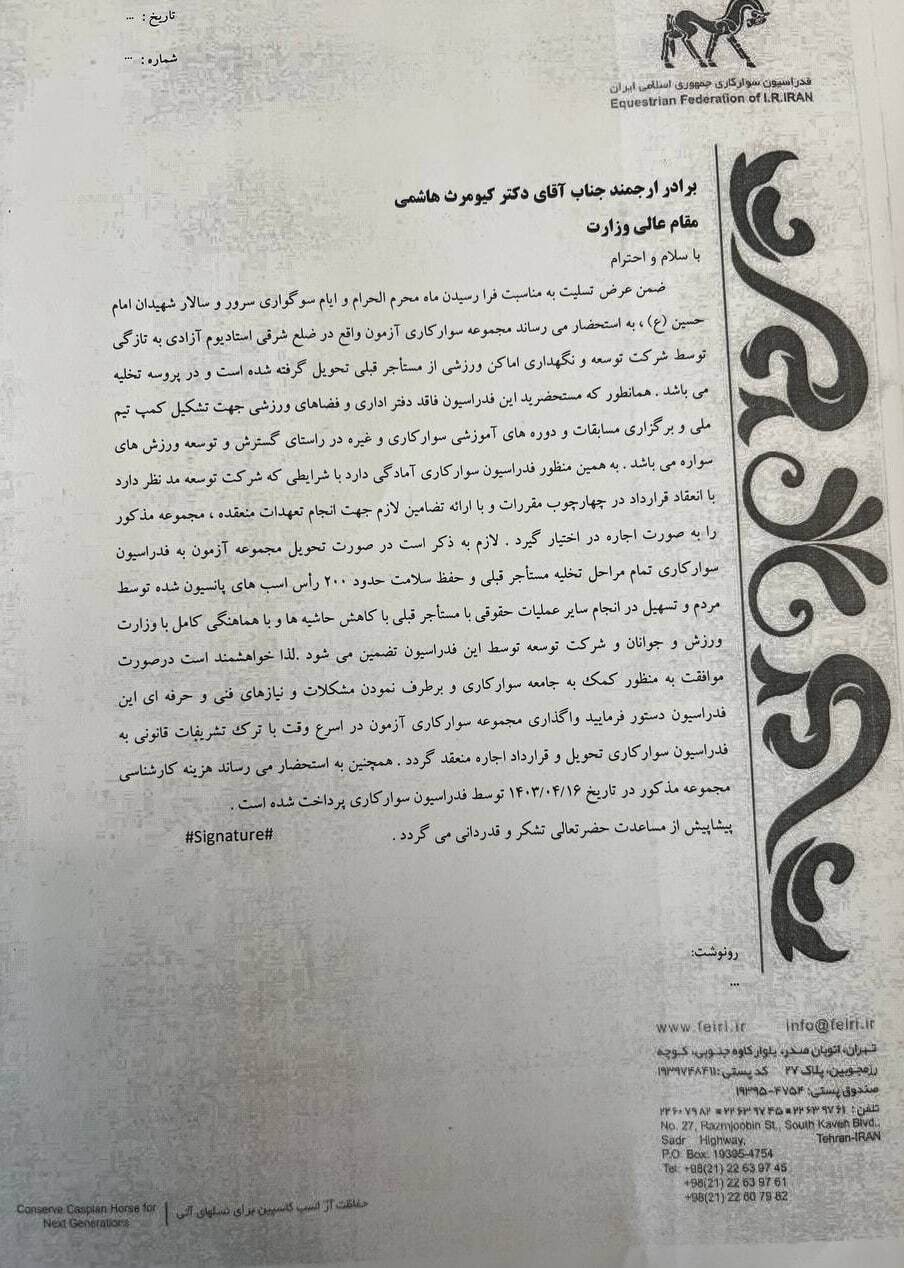 تاریخ : ...
شماره : ...
فدراسیون سوارکاری جمهوری اسلامی ایران
Equestrian Federation of I.R.IRAN
برادر ارجمند جناب آقای دکتر کیومرث هاشمی
مقام عالی وزارت
با سلام و احترام
ضمن عرض تسلیت به مناسبت فرا رسیدن ماه محرم الحرام و ایام سوگواری سرور و سالار شهیدان امام
حسین (ع) ، به استحضار می رساند مجموعه سوارکاری آزمون واقع در ضلع شرقی استادیوم آزادی به تازگی
توسط شرکت توسعه و نگهداری اماکن ورزشی از مستأجر قبلی تحویل گرفته شده است و در پروسه تخلیه
می باشد . همانطور که مستحضرید این فدراسیون فاقد دفتر اداری و فضاهای ورزشی جهت تشکیل کمپ تیم
ملی و برگزاری مسابقات و دوره های آموزشی سوارکاری و غیره در راستای گسترش و توسعه ورزش های
سواره می باشد . به همین منظور فدراسیون سوارکاری آمادگی دارد با شرایطی که شرکت توسعه مد نظر دارد
با انعقاد قرارداد در چهارچوب مقررات و با ارائه تضامین لازم جهت انجام تعهدات منعقده ، مجموعه مذکور
را به صورت اجاره در اختیار گیرد . لازم به ذکر است در صورت تحویل مجموعه آزمون به فدراسیون
سوارکاری تمام مراحل تخلیه مستأجر قبلی و حفظ سلامت حدود ۲۰۰ رأس اسب های پانسیون شده توسط
مردم و تسهیل در انجام سایر عملیات حقوقی با مستأجر قبلی با کاهش حاشیه ها و با هماهنگی کامل با وزارت
ورزش و جوانان و شرکت توسعه توسط این فدراسیون تضمین می شود .لذا خواهشمند است درصورت
موافقت به منظور کمک به جامعه سوارکاری و برطرف نمودن مشکلات و نیازهای فنی و حرفه ای این
فدراسیون دستور فرمایید واگذاری مجموعه سوارکاری آزمون در اسرع وقت با ترک تشریفات قانونی به
فدراسیون سوارکاری تحویل و قرارداد اجاره منعقد گردد . همچنین به استحضار می رساند هزینه کارشناسی
مجموعه مذکور در تاریخ ۱۴۰۳/۰۴/۱۶ توسط فدراسیون سوارکاری پرداخت شده است .
پیشاپیش از مساعدت حضرتعالی تشکر و قدردانی می گردد . #Signature#
رونوشت:
...
www.feiri.ir info@feiri.ir
تهران، اتوبان صدر، بلوار کاوه جنوبی، کوچه
رزمجویین، پلاک ۲۷ کد پستی: ۱۹۳۹۷۴۸۴۱۱
صندوق پستی: ۴۷۵۴-۱۹۳۹۵
تلفن: ۲۲۶۳۹۷۶۱ ■ ۲۲۶۳۹۷۴۵ ■ ۲۲۶۰۷۹۸۲
No. 27, Razmjoobin St., South Kaveh Blvd.,
Sadr Highway, Tehran-IRAN
P.O. Box: 19395-4754
Tel: +98(21) 22 63 97 45
+98(21) 22 63 97 61
+98(21) 22 60 79 82
حفاظت از اسب کاسپین برای نسلهای آتی
Conserve Caspian Horse for
Next Generations